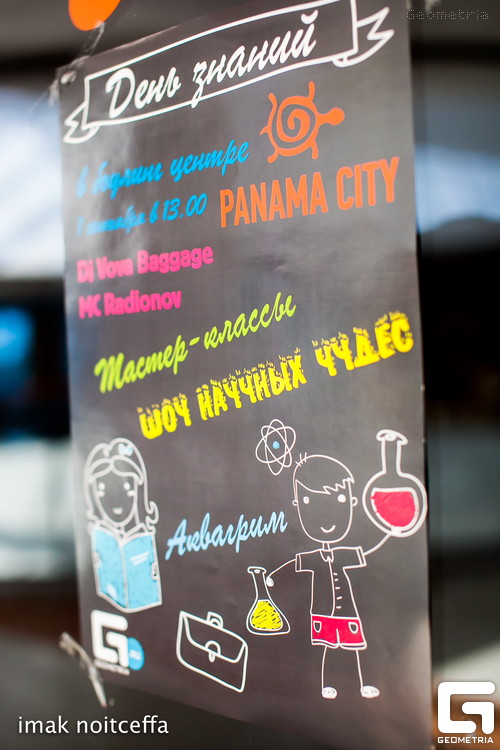 Geometria
День знаний
в боулинг центре
1 сентября в 13.00
PANAMA CITY
Dj Vova Baggage
MC Radionov
Мастер-классы
ШОУ НАУЧНЫХ ЧУДЕС
Аквагрим
GEOMETRIA
imak noitceffa
GEOMETRIA